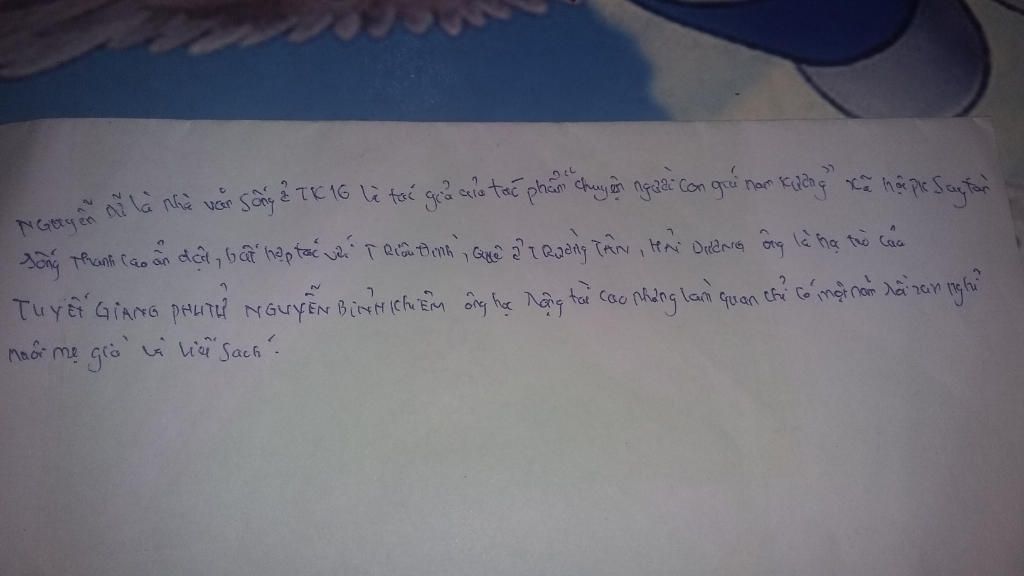 NGUYỄN Dữ là nhà văn sống ở TK16 là tác giả của tác phẩm "chuyện người con gái nam xương" xã hội pk suy tàn
sống thanh cao ẩn dật, bất hợp tác với TRiều Đình, Quê ở TRƯỜNG TÂN, HẢI DƯƠNG ông là học trò của
TUYẾT GIANG PHU TỬ NGUYỄN BỈNH KHIÊM ông học rộng tài cao nhưng làm quan chỉ có một năm rồi xin nghỉ
nuôi mẹ già và viết sách.